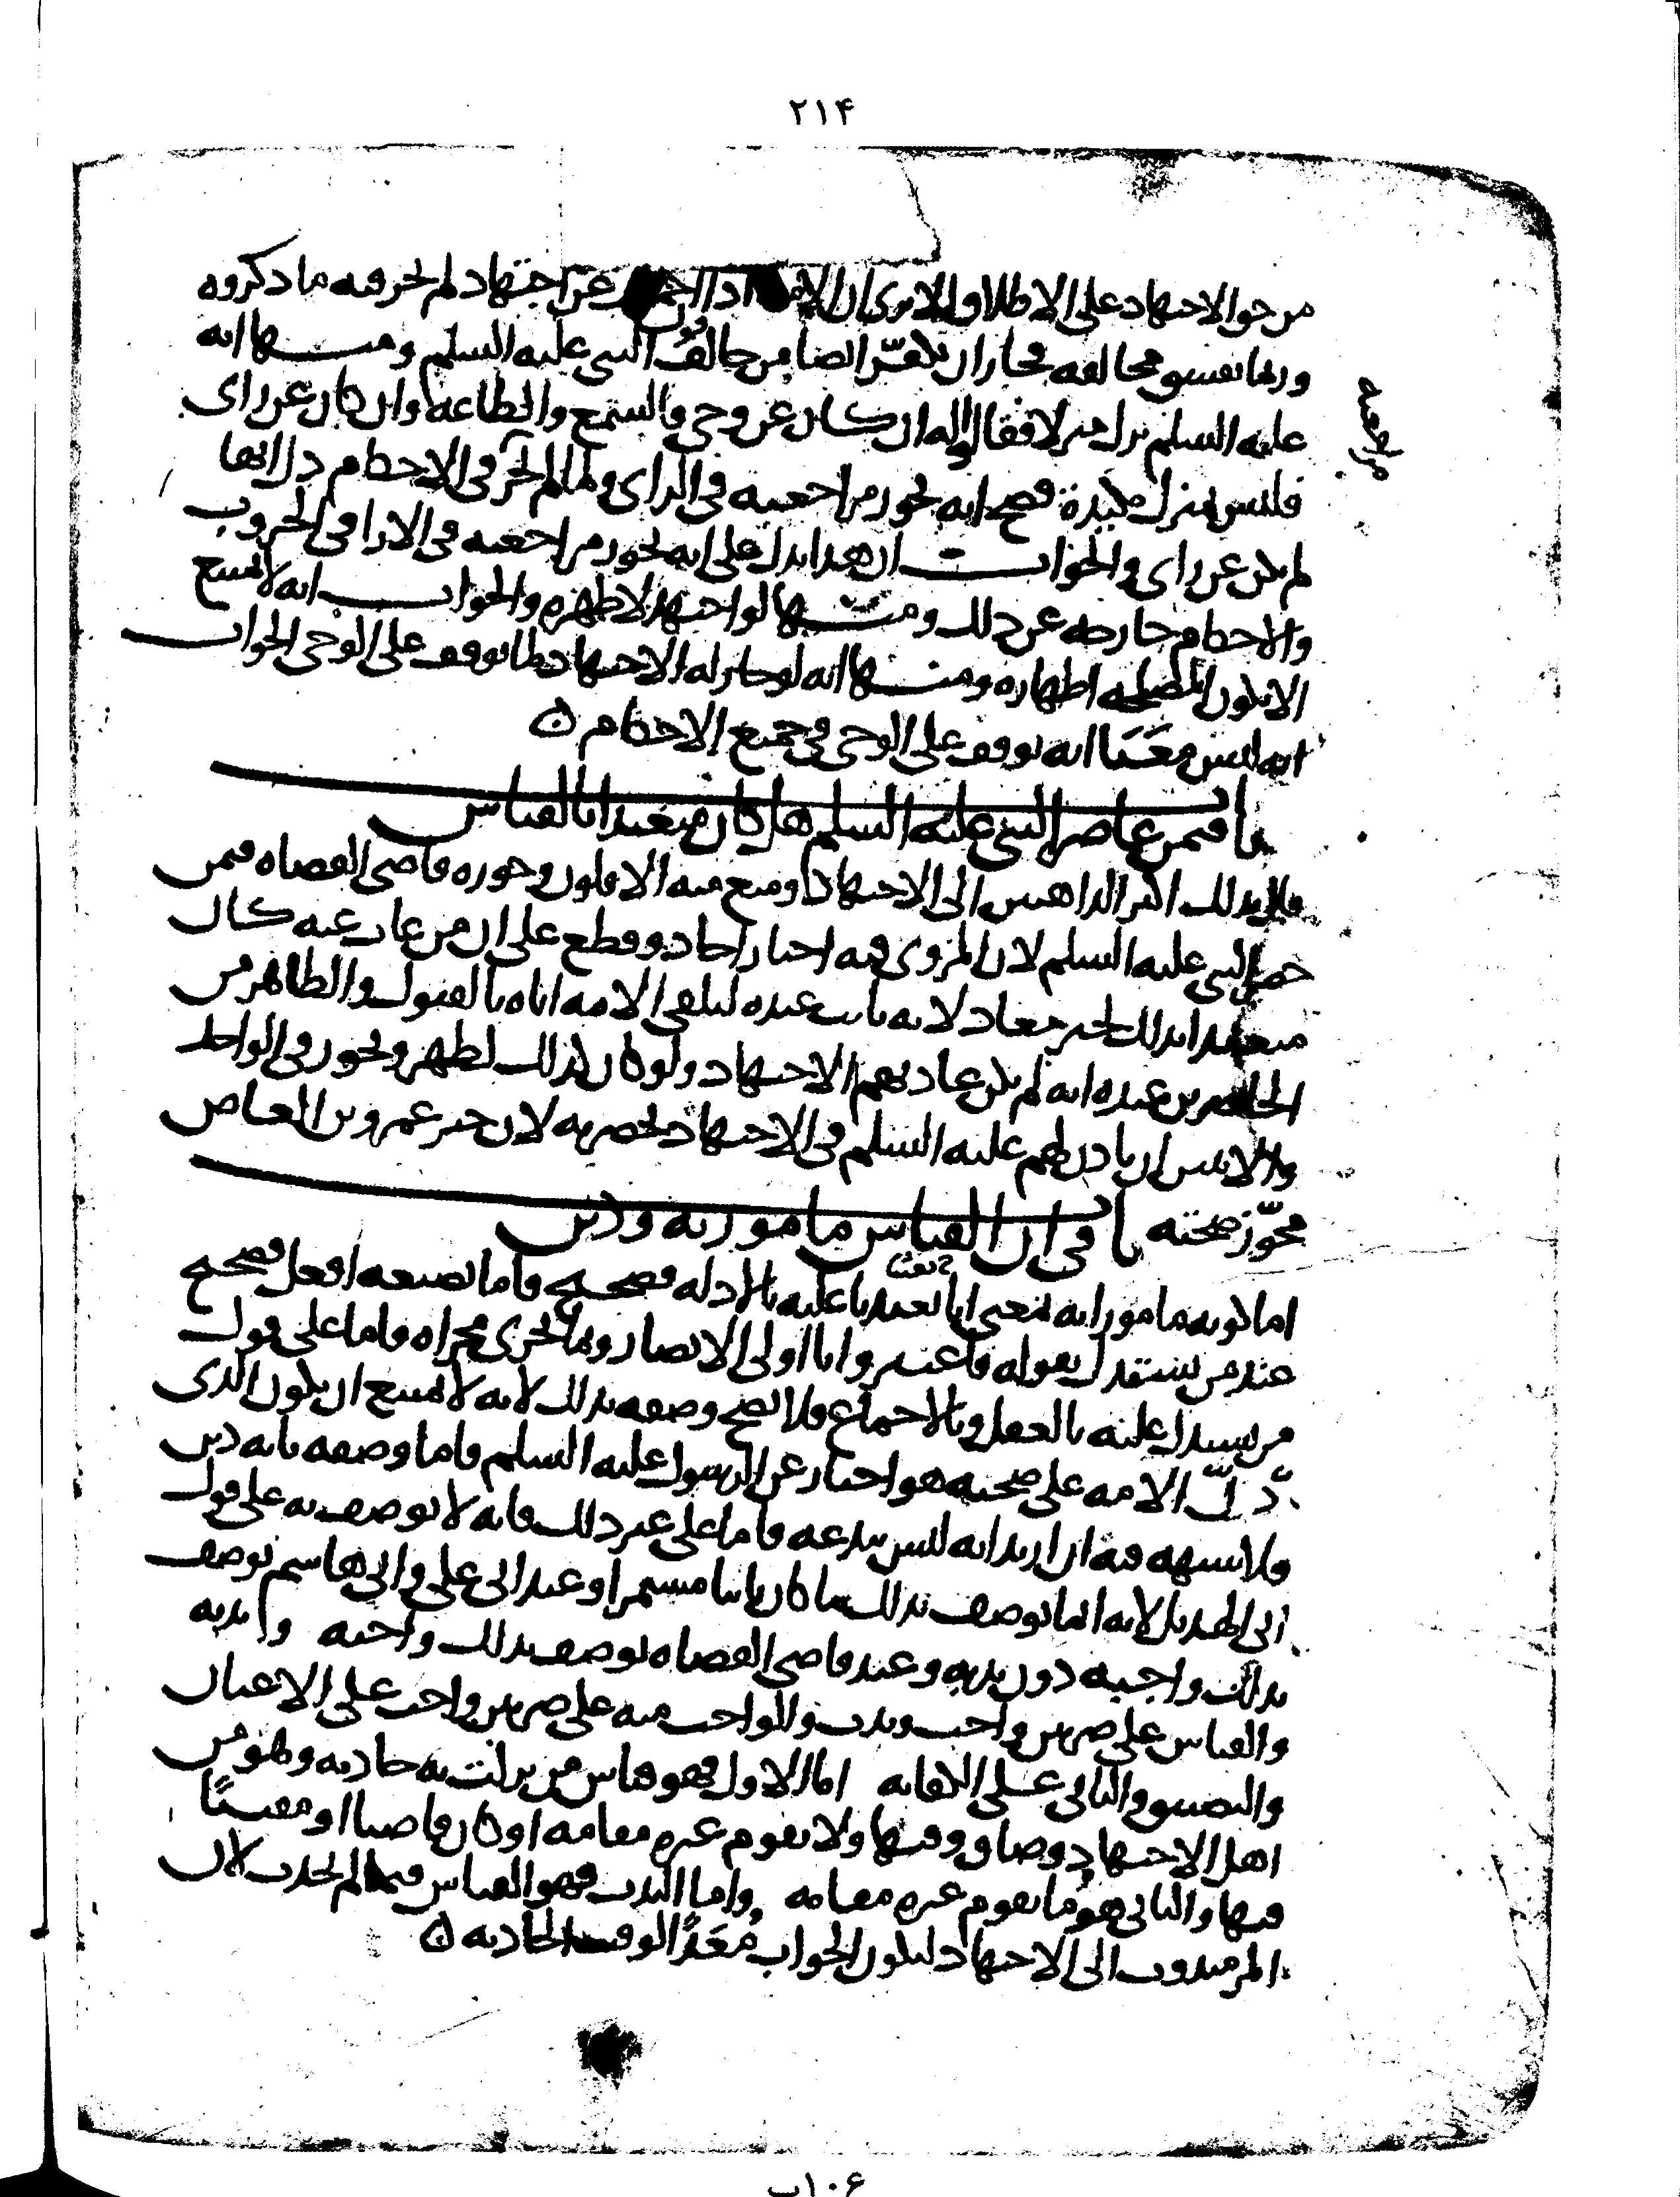 ۲۱۴
من حق الاجتهاد على الاطلاق الا ترى ان الامة اذا اجمعت عن اجتهاد لم يجز فيه ما ذكروه
وربما نفسق مخالفه فجاز ان نكفر ايضا من خالف قول النبي عليه السلم ومنها انه
عليه السلم نزل منزلا فقالوا له ان كان عن وحي فالسمع والطاعة وان كان عن راى
مراجعته
فليس بمنزل مكيدة فصح انه يجوز مراجعته في الراى ولما لم يجز في الاحكام دل انها
لم تكن عن راى والجواب ان هذا يدل على انه يجوز مراجعته في الارا في الحروب
والاحكام خارجة عن ذلك ومنها لو اجتهد لاظهره والجواب انه لا يمتنع
الا تكون المصلحة اظهاره ومنها انه لو جاز له الاجتهاد لما توقف على الوحي الجواب
انه ليس معنا انه توقف على الوحي في جميع الاحكام ن
باب فيمن عاصر النبي عليه السلم هل كان متعبدا بالقياس
قال بذلك اكثر الذاهبين الى الاجتهاد ومنع منه الاقلون وجوزه قاضي القضاه فيمن
حضر النبي عليه السلم لان المروى فيه اخبار احاد وقطع على ان من غاب عنه كان
متعبدا بذلك لخبر معاذ لانه ثابت عنده لتلقي الامة اياه بالقبول والظاهر من
الحاضرين عنده انه لم يكن عادتهم الاجتهاد ولو كان كذلك لظهر ويجوز في الواحد
والاثنين ان ياذن لهم عليه السلم في الاجتهاد بحضرته لان خبر عمرو بن العاص
مجوز صحته باب في ان القياس مامور به ودين
اما كونه مامورا به بمعنى انا بعثنا عليه بالادلة فصحيح واما بصيغة افعل فصحيح
عند من يستدل بقوله فاعتبروا يا اولى الابصار وما يجرى مجراه واما على قول
من يستدل عليه بالعقل وبالاجماع فلا يصح وصفه بذلك لانه لا يمتنع ان يكون الذى
دل الامة على صحته هو اخبار عن الرسول عليه السلم فاما وصفه بانه دين
ولا شبهة فيه ان اريد انه ليس ببدعة فاما على غير ذلك فانه لا يوصف به على قول
ابى الهذيل لانه انما يوصف بذلك ما كان ثابتا مستمرا وعند ابى علي وابى هاشم توصف
بذلك واجبه دون ندبه وعند قاضي القضاه توصف بذلك واجبه وندبه
والقياس على ضربين واجب وندب والواجب منه على ضربين واجب على الاعيان
والتضييق والثاني على الكفاية اما الاول فهو قياس من نزلت به حادثة وهو من
اهل الاجتهاد وضاق وقتها ولا يقوم غيره مقامه او كان قاضيا او مفتيا
فيها والثاني هو ما يقوم غيره مقامه واما الندب فهو القياس فيما لم يحدث لان
المرء مندوب الى الاجتهاد ليكون الجواب معدا لوقت الحادثة ن
۱۰۶ب